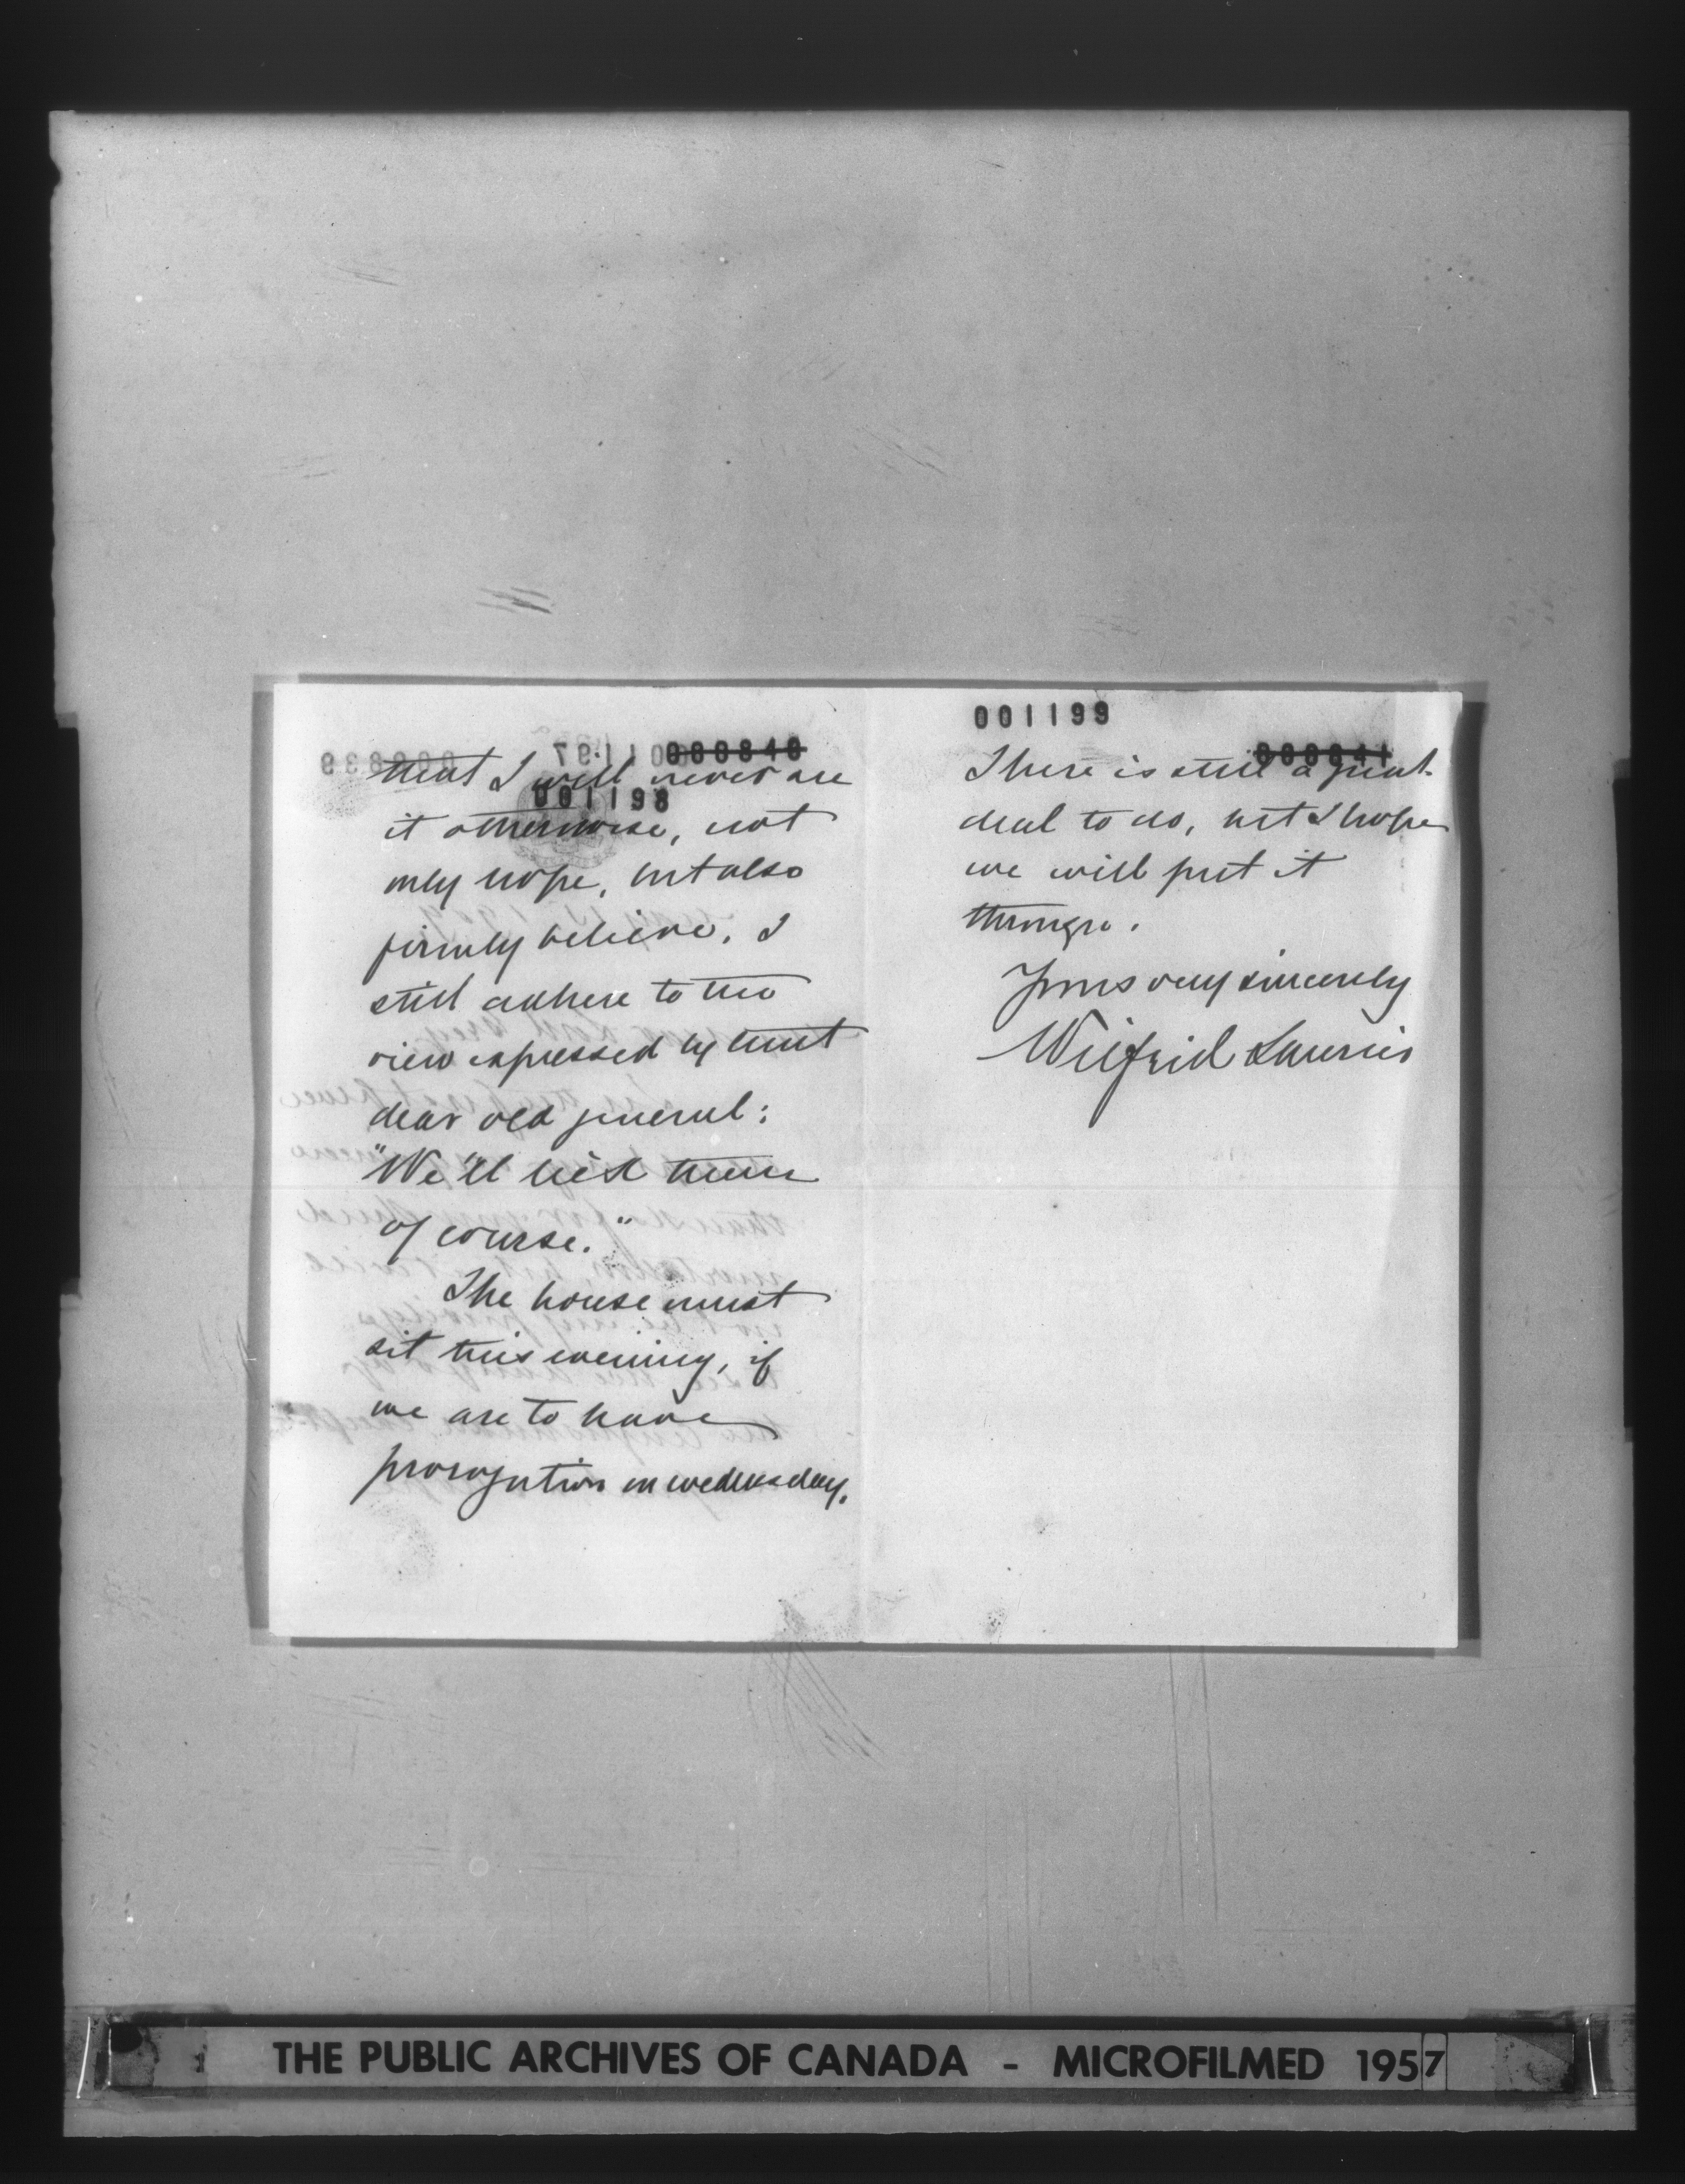 000840
that I will never see
001198
it otherwise, not
only hope, but also
firmly believe. I
still adhere to the
view expressed by that
dear old general:
"We'll lick them
of course."
The house must
sit this evening, if
we are to have
prorogation on wednesday.
001199
000841
There is still a great
deal to do, but I hope
we will put it
through.
Yours very sincerely
Wilfrid Laurier
THE PUBLIC ARCHIVES OF CANADA - MICROFILMED 1957